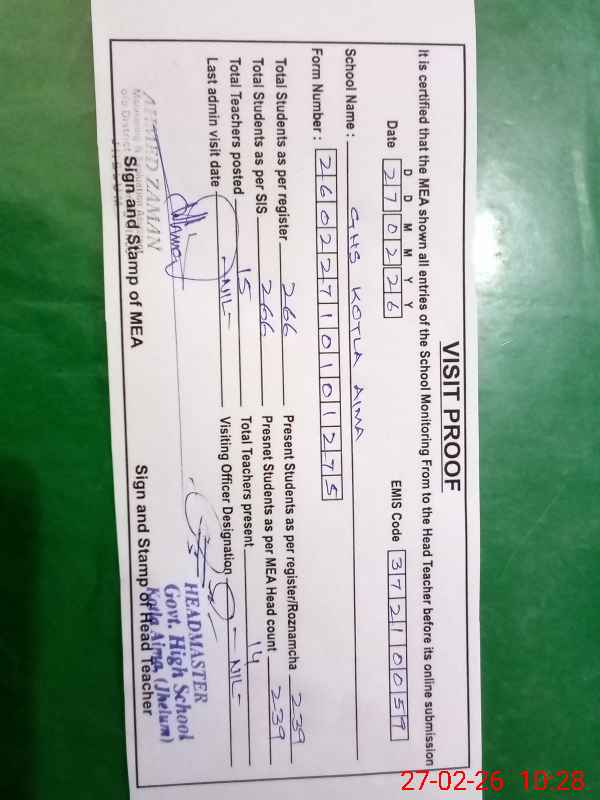 VISIT PROOF
It is certified that the MEA shown all entries of the School Monitoring From to the Head Teacher before its online submission
D D M M Y Y
Date 270226 EMIS Code 37210059
School Name : GHS KOTLA AIMA
Form Number : 26022710101275
Total Students as per register 266 Present Students as per register/Roznamcha 239
Total Students as per SIS 266 Presnet Students as per MEA Head count 239
Total Teachers posted 15 Total Teachers present 14
Last admin visit date -NIL- Visiting Officer Designation -NIL-
AHMED ZAMAN
HEADMASTER
Govt. High School
Kotla Aima (Jhelum)
Sign and Stamp of MEA Sign and Stamp of Head Teacher
27-02-26 10:28